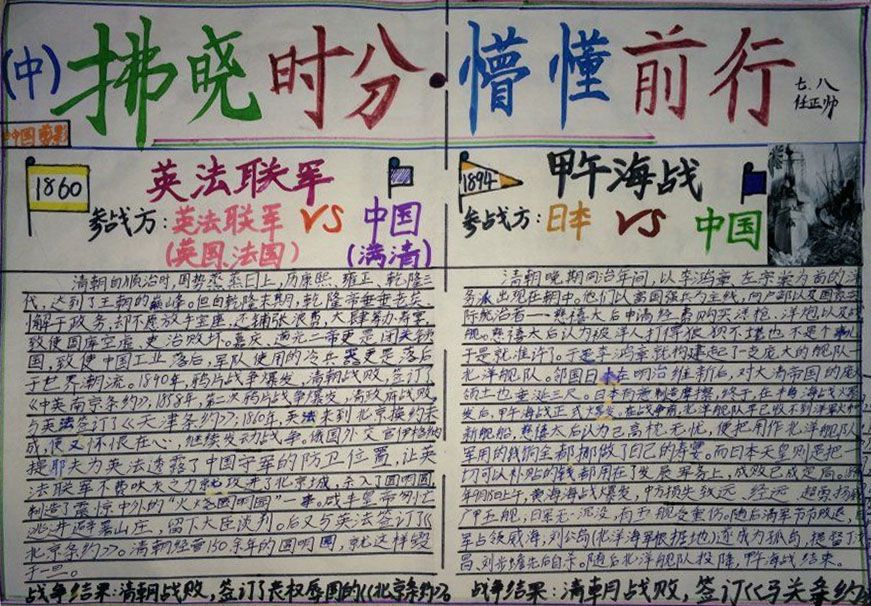 (中) 拂晓时分·懵懂前行
七、八
任正帅
中国剪影
1860 英法联军
参战方:英法联军 VS 中国
(英国、法国) (满清)
清朝自顺治时,国势蒸蒸日上,历康熙、雍正、乾隆三
代,达到了王朝的巅峰。但自乾隆末期,乾隆帝垂垂老矣,
懈于政务,却不愿放弃宝座,还铺张浪费,大肆举办寿宴,
致使国库空虚,吏治败坏。嘉庆、道光二帝更是闭关锁
国,致使中国工业落后,军队使用的冷兵器更是落后
于世界潮流。1840年,鸦片战争爆发,清朝战败,签订了
《中英南京条约》;1858年,第二次鸦片战争爆发,清政府战败,
与英法签订了《天津条约》;1860年,英法来到北京换约未
成,便又怀恨在心,继续发动战争。俄国外交官伊格纳
提耶夫为英法透露了中国守军的防卫位置,让英
法联军不费吹灰之力就攻进了北京城,杀入了圆明园,
制造了震惊中外的“火烧圆明园”一事。咸丰皇帝匆忙
逃进避暑山庄,留下大臣谈判。后又与英法签订了《
北京条约》。清朝经营150余年的圆明园,就这样毁
于一旦。
战争结果:清朝战败,签订了丧权辱国的《北京条约》。
1894 甲午海战
参战方:日本 VS 中国
清朝晚期同治年间,以李鸿章、左宗棠为首的洋
务派出现在朝中。他们以富国强兵为主线,向户部以及国家实
际统治者——慈禧太后申请经费购买洋枪、洋炮以及战
舰。慈禧太后认为被洋人打得狼狈不堪也不是个事儿,
于是就准许了。于是李鸿章就构建起了一支庞大的舰队——
北洋舰队。邻国日本在明治维新后,对大清帝国的庞大
领土也垂涎三尺。日本有意制造摩擦,终于,在丰岛海战火爆
发后,甲午海战正式爆发。在战争前,北洋舰队早已收不到洋军火和
新舰船,慈禧太后认为已高枕无忧,便把用作北洋舰队
军用的钱财全都挪做了自己的寿宴。而日本天皇则是把一
切可以补贴的钱都用在了发展军务上,成败已成定局。
年9月17日上午,黄海海战爆发,中方损失致远、经远、超勇、扬威、
广甲五舰,日军无一沉没,有五舰受重伤。随后清军节节败退,
军占领威海,刘公岛(北洋海军根据地)遂成为孤岛,提督丁
昌、刘步蟾先后自杀。随后北洋舰队投降,甲午海战结束。
战争结果:清朝战败,签订《马关条约》